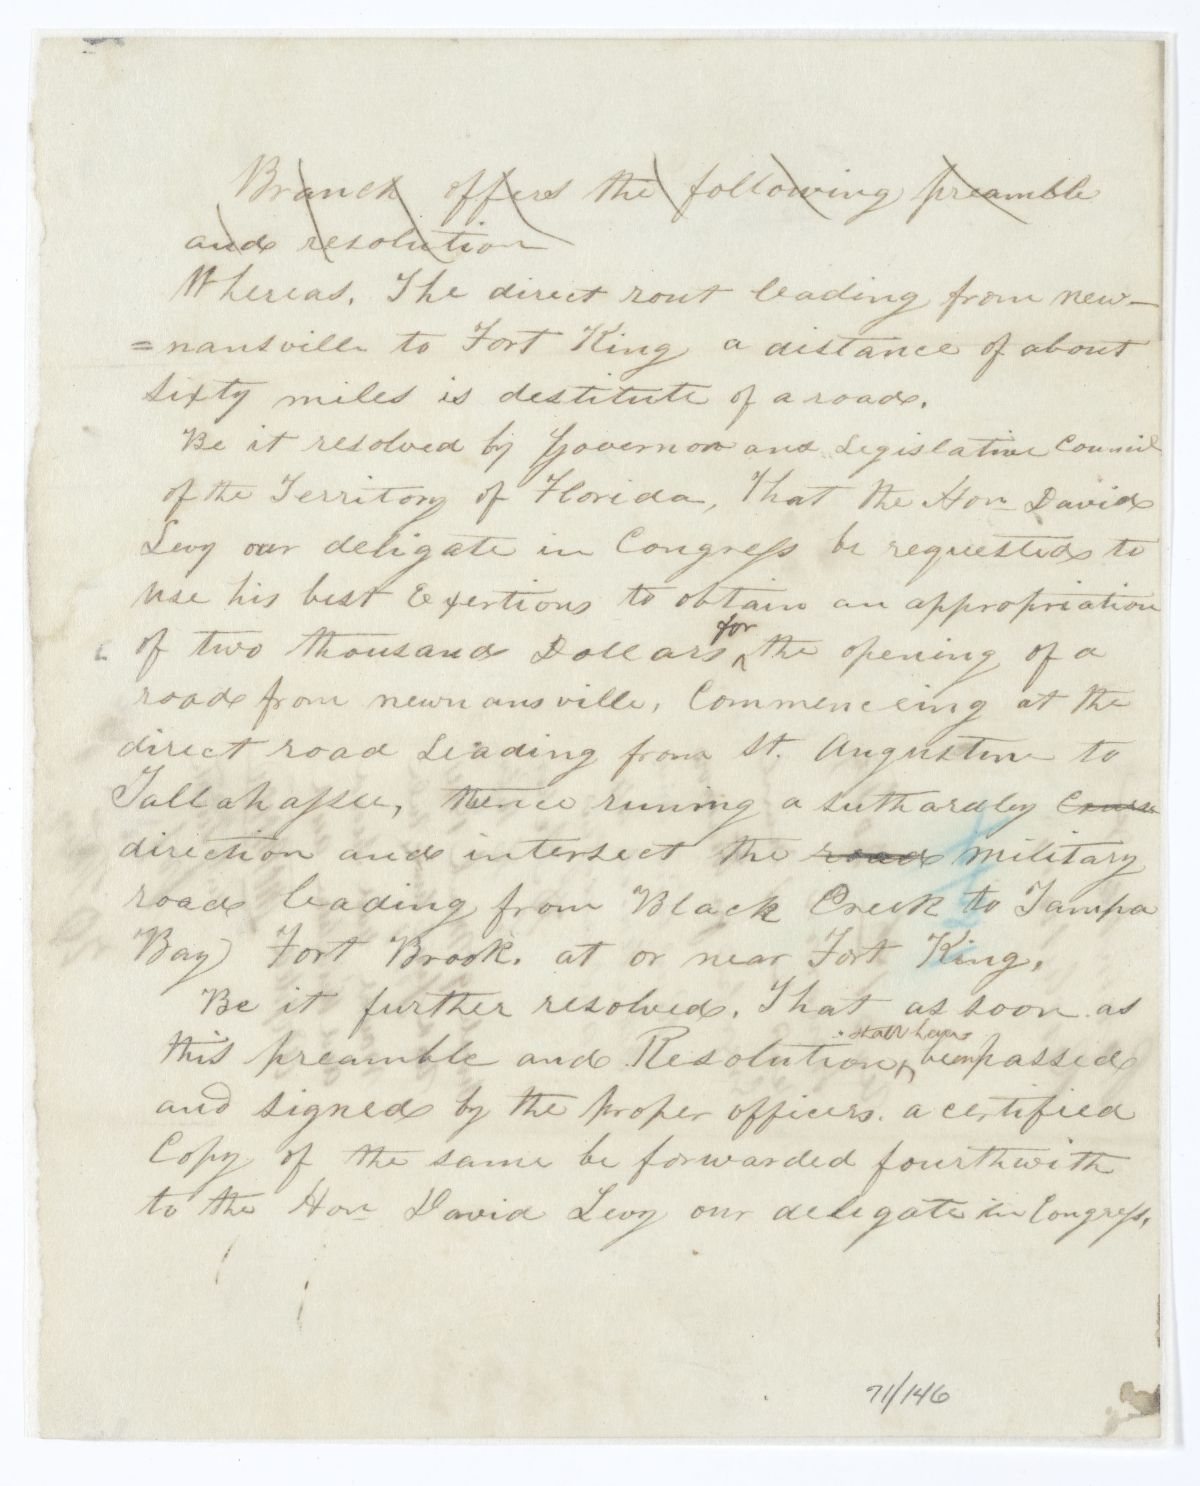 Branch offers the following preamble
and resolution
Whereas, The direct rout leading from new-
=nansville to Fort King a distance of about
sixty miles is destitute of a road.
Be it resolved by Governor and Legislative Council
of the Territory of Florida, That the Hon David
Levy our deligate in Congress be requested to
use his best Exertions to obtain an appropriation
of two thousand Dollars for the opening of a
road from newnansville, Commenceing at the
direct road Leading from St. Augustine to
Tallahassee, thence runing a suthardley Course
direction and intersect the road military
road leading from Black Creek to Tampa
Bay) Fort Brook. at or near Fort King.
Be it further resolved. That as soon as
this preamble and Resolution shall have been passed
and signed by the proper officers. a certified
Copy of the same be forwarded fourthwith
to the Hon David Levy our delegate in Congress.
71/146